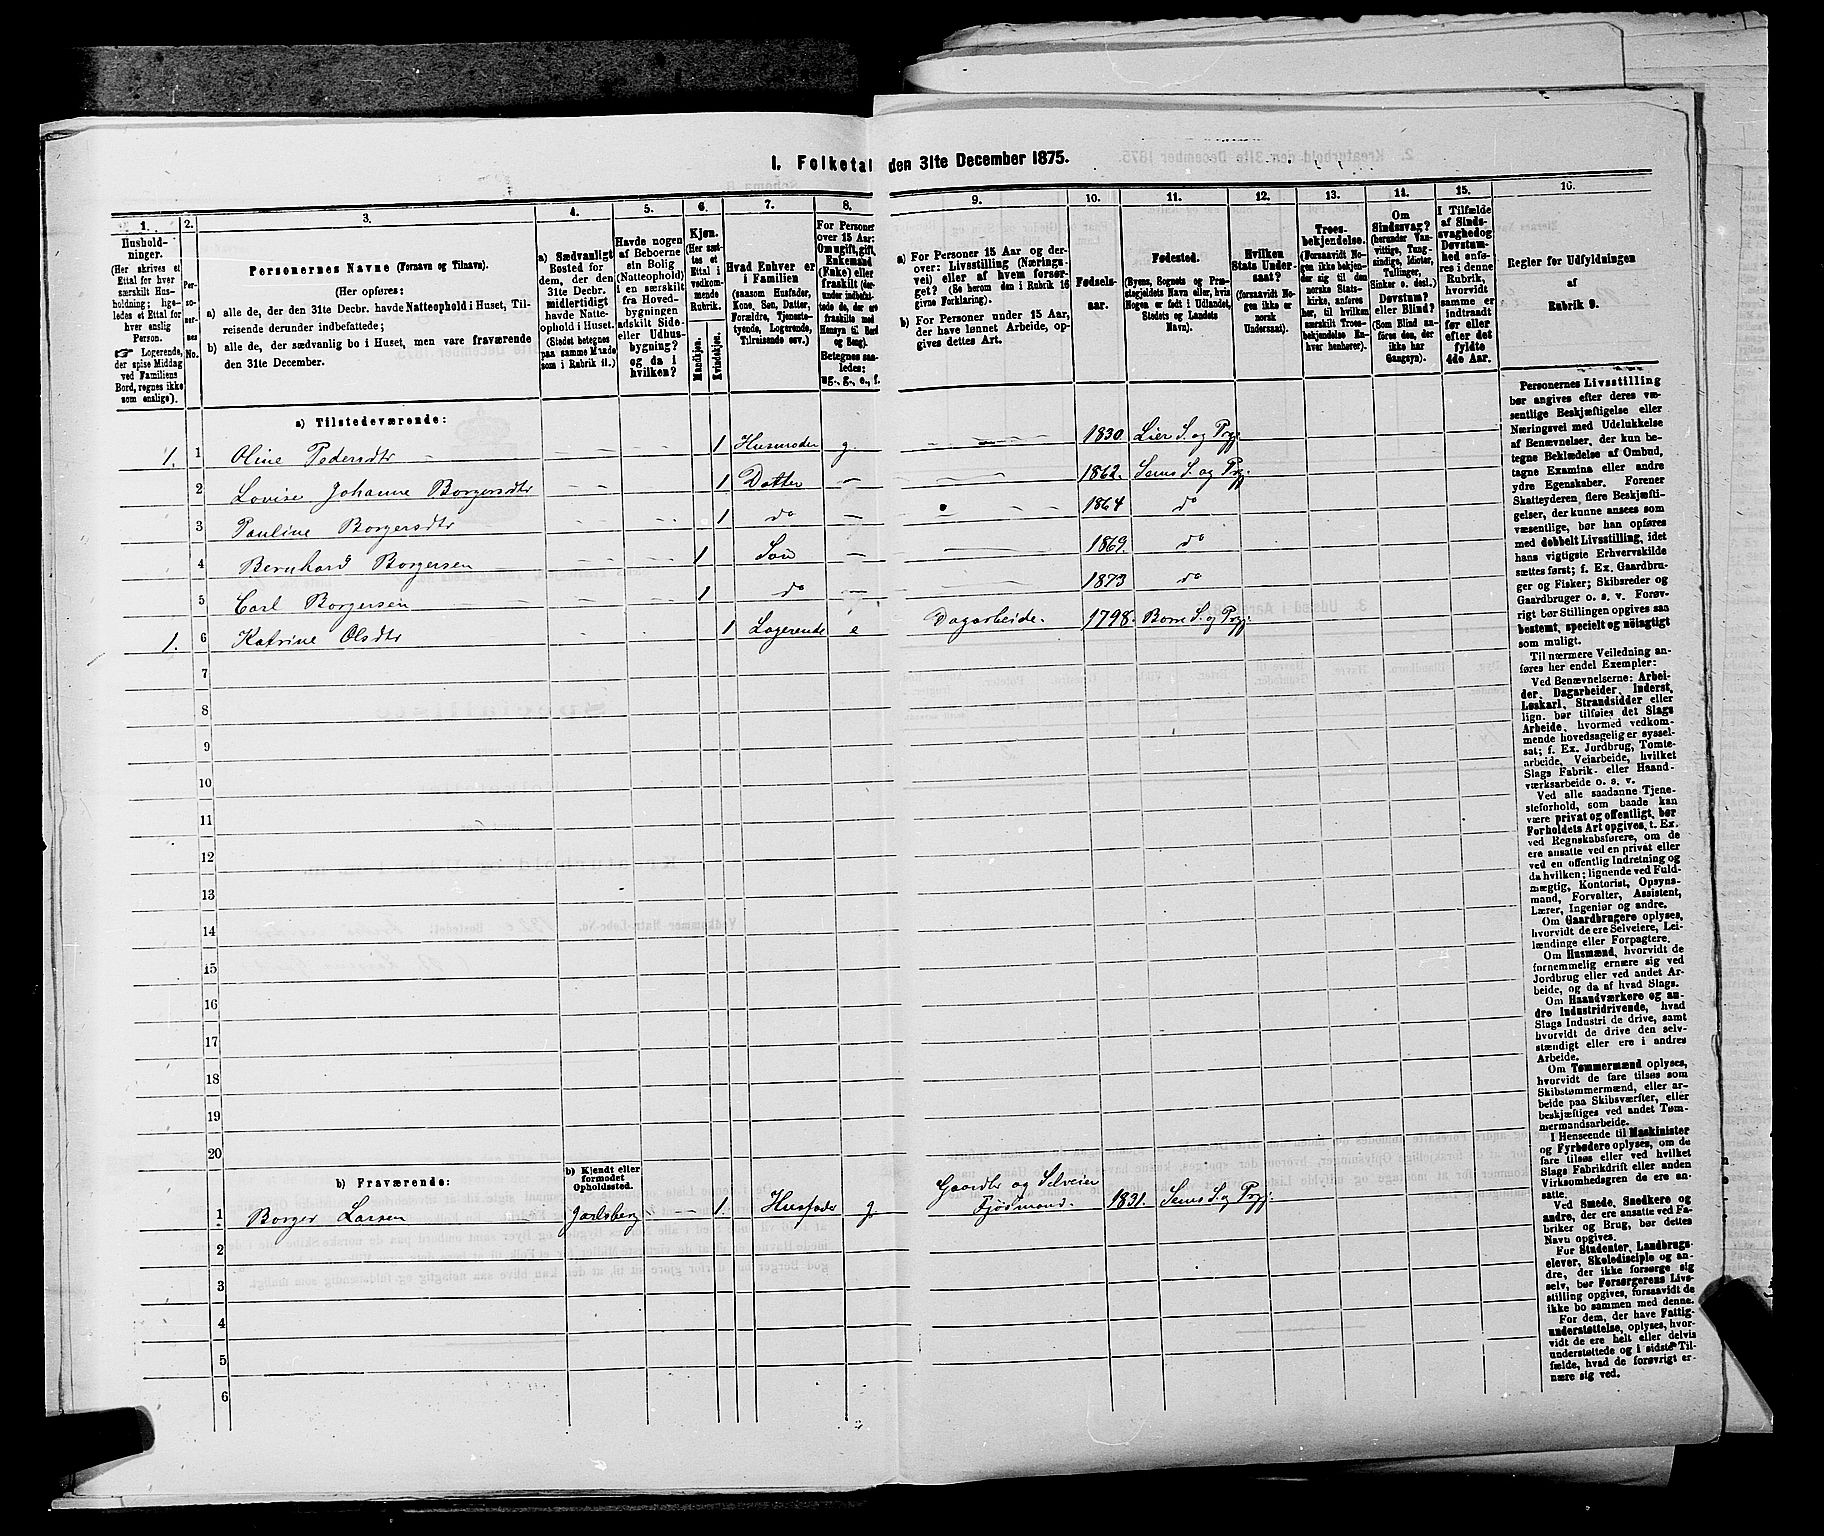 I. Folketal den 31te December 1875.
1. 2. 3. 4. 5. 6. 7. 8. 9. 10. 11. 12. 13. 14. 15. 16.
Hushold-
ninger.
(Her skrives et
Ettal for hver
særskilt Hus-
holdning; lige-
ledes et Ettal for
hver enslig
Person.
☞ Logerende,
der spise Middag
ved Familiens
Bord, regnes ikke
som enslige).
Per-
so-
ner-
nes
No.
Personernes Navne (Fornavn og Tilnavn).
(Her opføres:
a) alle de, der den 31te Decbr. havde Natteophold i Huset, Til-
reisende derunder indbefattede;
b) alle de, der sædvanlig bo i Huset, men vare fraværende
den 31te December.
a) Sædvanligt
Bosted for
dem, der den
31te Decbr.
midlertidigt
havde Natte-
ophold i Huset.
(Stedet betegnes
paa samme Maade
som i Rubrik 11.)
Havde nogen
af Beboerne
sin Bolig
(Natteophold)
i en særskilt
fra Hoved-
bygningen
adskilt Side-
eller Udhus-
bygning?
og da i
hvilken?
Kjøn.
(Her sæt-
tes et
Ettal i
vedkom-
mende
Rubrik.
Mandkjøn.
Kvindekjøn.
Hvad Enhver er
i Familien
(saasom Husfader,
Kone, Søn, Datter,
Forældre, Tjeneste-
tyende, Logerende,
Tilreisende osv.)
For Personer
over 15 Aar:
Om ugift, gift,
Enkemand
(Enke) eller
fraskilt (der-
under indbefat-
tede de, der ere
fraskilte med
Hensyn til Bord
og Seng).
Betegnes saa-
ledes:
ug., g., e., f.
a) For Personer 15 Aar og der-
over: Livsstilling (Nærings-
vei) eller af hvem forsør-
get? (Se herom den i Rubrik 16
givne Forklaring).
b) For Personer under 15 Aar,
der have lønnet Arbeide, op-
gives dettes Art.
Fødsels-
aar.
Fødested.
(Byens, Sognets og Præ-
stegjeldets Navn eller, hvis
Nogen er født i Udlandet,
Stedets og Landets
Navn).
Hvilken
Stats Under-
saat?
(forsaavidt No-
gen ikke er
norsk
Undersaat).
Troes-
bekjendelse.
(Forsaavidt No-
gen ikke bekjen-
der sig til den
norske Stats-
kirke, anføres
her, til hvilken
særskilt Troes-
bekjendelse En-
hver henhører).
Om
Sindssvag?
(herunder Van-
vittige, Tung-
sindige, Idioter,
Tullinger,
Sinker o. desl.)
Døvstum?
eller Blind?
(Som Blind an-
føres den, der
ikke har
Gangsyn).
I Tilfælde
af Sinds-
svaghed og
Døvstum-
hed anfø-
res i denne
Rubrik,
hvorvidt
samme er
indtraadt
før eller
efter det
fyldte
4de Aar.
Regler for Udfyldningen
af
Rubrik 9.
a) Tilstedeværende:
1. 1 Oline Pedersdtr — — — 1 Husmoder g. — — 1830 Lier S. og Prgj.
2 Lovise Johanne Borgersdtr — — — 1 Datter — — — 1862. Sems S. og Prgj.
3 Pauline Borgersdtr — — — 1 do — — — 1864 do
4 Bernhard Borgersen — — — 1 Søn — — — 1869. do
5 Carl Borgersen — — — 1 do — — — 1873 do
1. 6 Katrine Olsdtr — — — 1 Logerende e Dagarbeide. 1798. Borre S. og Prgj.
7
8
9
10
11
12
13
14
15
16
17
18
19
20
b) Fraværende:
b) Kjendt eller
formodet
Opholdssted.
1 Borger Larsen — Jarlsberg — — 1. Husfader g. Gaardbr og Selveier
Fjødmand. 1831. Sems S. og Prgj.
2
3
4
5
6
Personernes Livsstilling
bør angives efter deres væ-
sentlige Beskjæftigelse eller
Næringsvei med Udelukkelse
af Benævnelser, der kun be-
tegne Beklædelse af Ombud,
tagne Examina eller andre
ydre Egenskaber. Forener
Skatteyderen flere Beskjæfti-
gelser, der kunne ansees som
væsentlige, bør han opføres
med dobbelt Livsstilling, idet
hans vigtigste Erhvervskilde
sættes først; f. Ex. Gaardbru-
ger og Fisker; Skibsreder og
Gaardbruger o. s. v. Forøv-
rigt bør Stillingen opgives saa
bestemt, specielt og nøiagtigt
som muligt.
Til nærmere Veiledning an-
føres her endel Exempler:
Ved Benævnelserne: Arbei-
der, Dagarbeider, Inderst,
Løskarl, Strandsidder eller
lign. bør tilføies det Slags
Arbeide, hvormed vedkom-
mende hovedsagelig er syssel-
sat; f. Ex. Jordbrug, Tomte-
arbeide, Veiarbeide, hvilket
Slags Fabrik- eller Haand-
værksarbeide o. s. v.
Ved alle saadanne Tjene-
steforhold, som baade kan
være privat og offentligt, bør
Forholdets Art opgives, t. Ex.
ved Regnskabsførere, om de
ere ansatte ved en privat eller
ved en offentlig Indretning og
da hvilken; lignende ved Fuld-
mægtig, Kontorist, Opsyns-
mand, Forvalter, Assistent,
Lærer, Ingeniør og andre.
Om Gaardbrugere oplyses,
hvorvidt de ere Selveiere, Lei-
lændinge eller Forpagtere.
Om Husmænd, hvorvidt de
fornemmelig ernære sig ved
Jordbrug eller ved andet Ar-
beide, og da af hvad Slags.
Om Haandværkere og an-
dre Industridrivende, hvad
Slags Industri de drive, samt
hvorvidt de drive den selv-
stændigt eller ere i andres
Arbeide.
Om Tømmermænd oplyses,
hvorvidt de fare tilsøs som
Skibstømmermænd, eller ar-
beide paa Skibsværfter, eller
beskjæftiges ved andet Tøm-
mermandsarbeide.
I Henseende til Maskinister
og Fyrbødere oplyses, om de
fare tilsøs eller ved hvilket
Slags Fabrikdrift eller anden
Virksomhedsgren de ere an-
satte.
Ved Smede, Snedkere og
andre, der ere ansatte ved Fa-
briker og Brug, bør dettes
Navn opgives.
For Studenter, Landbrugs-
elever, Skoledisciple og an-
dre, der ikke forsørge sig
selv, bør Forsørgerens Livs-
stilling opgives, forsaavidt de
ikke bo sammen med denne.
For dem, der have Fattig-
understøttelse, oplyses, hvor-
vidt de ere helt eller delvis
understøttede og i sidste Til-
fælde, hvad de forøvrigt er-
nære sig ved.